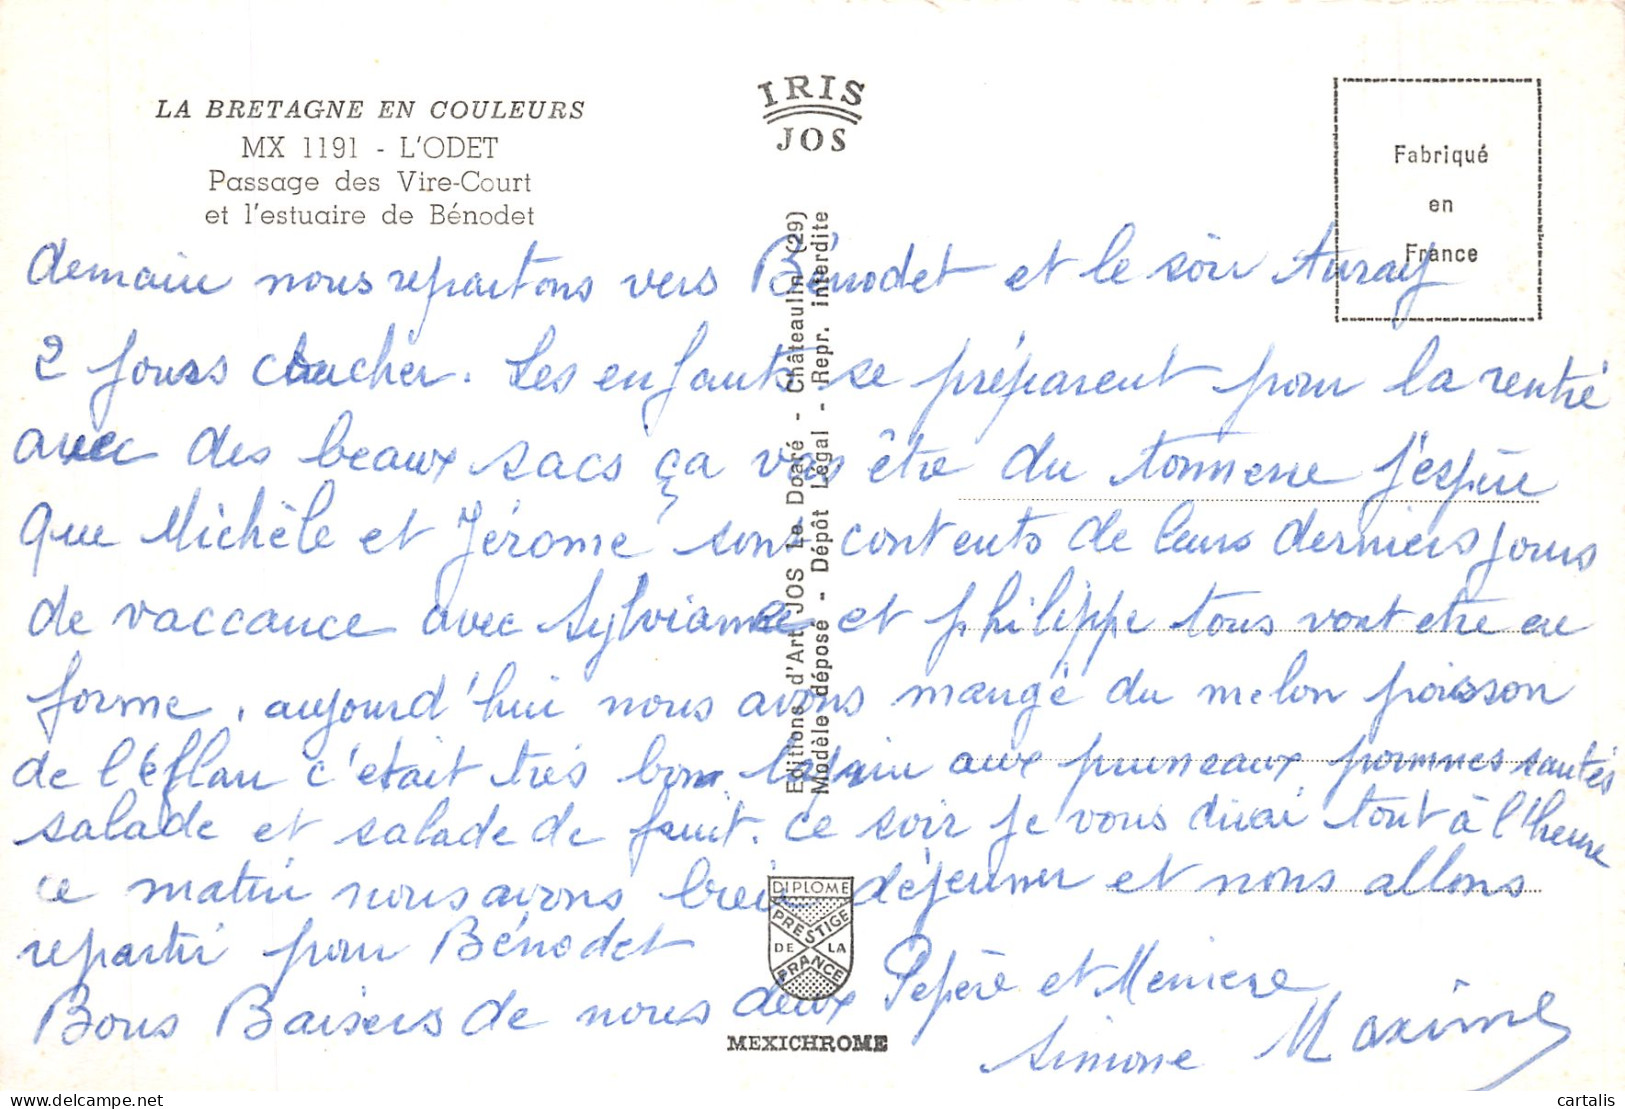 LA BRETAGNE EN COULEURS
MX 1191 - L'ODET
Passage des Vire-Court
et l'estuaire de Bénodet
IRIS
JOS
Fabriqué
en
France
Editions d'Art JOS Le Doaré - Châteaulin (29)
Modèle déposé - Dépôt Légal - Repr. interdite
demain nous repartons vers Bénodet et le soir Auray
2 jours coucher. Les enfants se préparent pour la rentré
avec des beaux sacs ça vas être du tonnerre j'espère
que Michèle et Jérome sont contents de leurs derniers jours
de vaccance avec Sylvianne et philippe tous vont etre en
forme, aujourd'hui nous avons mangé du melon poisson
de l'éflan c'était très bon lapin aux pruneaux pommes sautés
salade et salade de fruit. ce soir je vous dirai tout à l'heure
ce matin nous avons bien déjeuner et nous allons
repartir pour Bénodet
Bons Baisers de nous deux Pepère et Memere
Simone Maxime
DIPLOME
PRESTIGE
DE LA
FRANCE
MEXICHROME
delcampe.net
cartalis